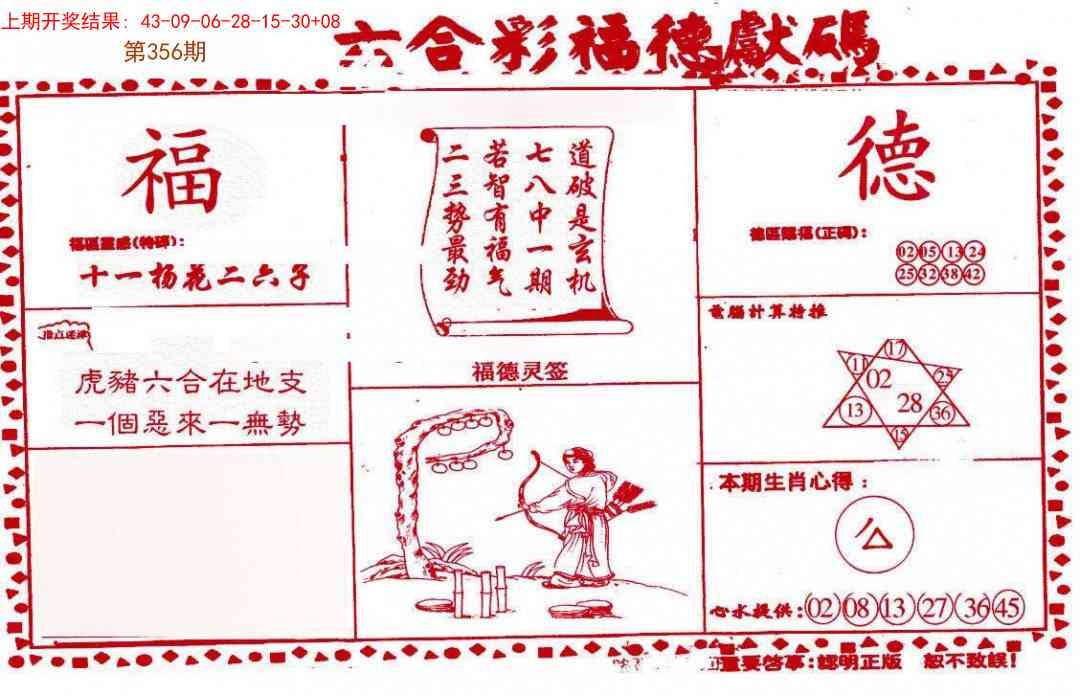 上期开奖结果: 43-09-06-28-15-30+08
第356期
六合彩福德獻碼
福
福區靈感(特碼):
十一杨花二六子
虎豬六合在地支
一個惡來一無勢
道破是玄机
七八中一期
若智有福气
二三势最劲
福德灵签
德
德區靈感(正碼):
02 05 13 24
25 32 38 42
電腦計算特推
17
11
02
25
13
28
36
15
本期生肖心得:
心水提供:02 08 13 27 36 45
重要啓事:認明正版 恕不致誤!